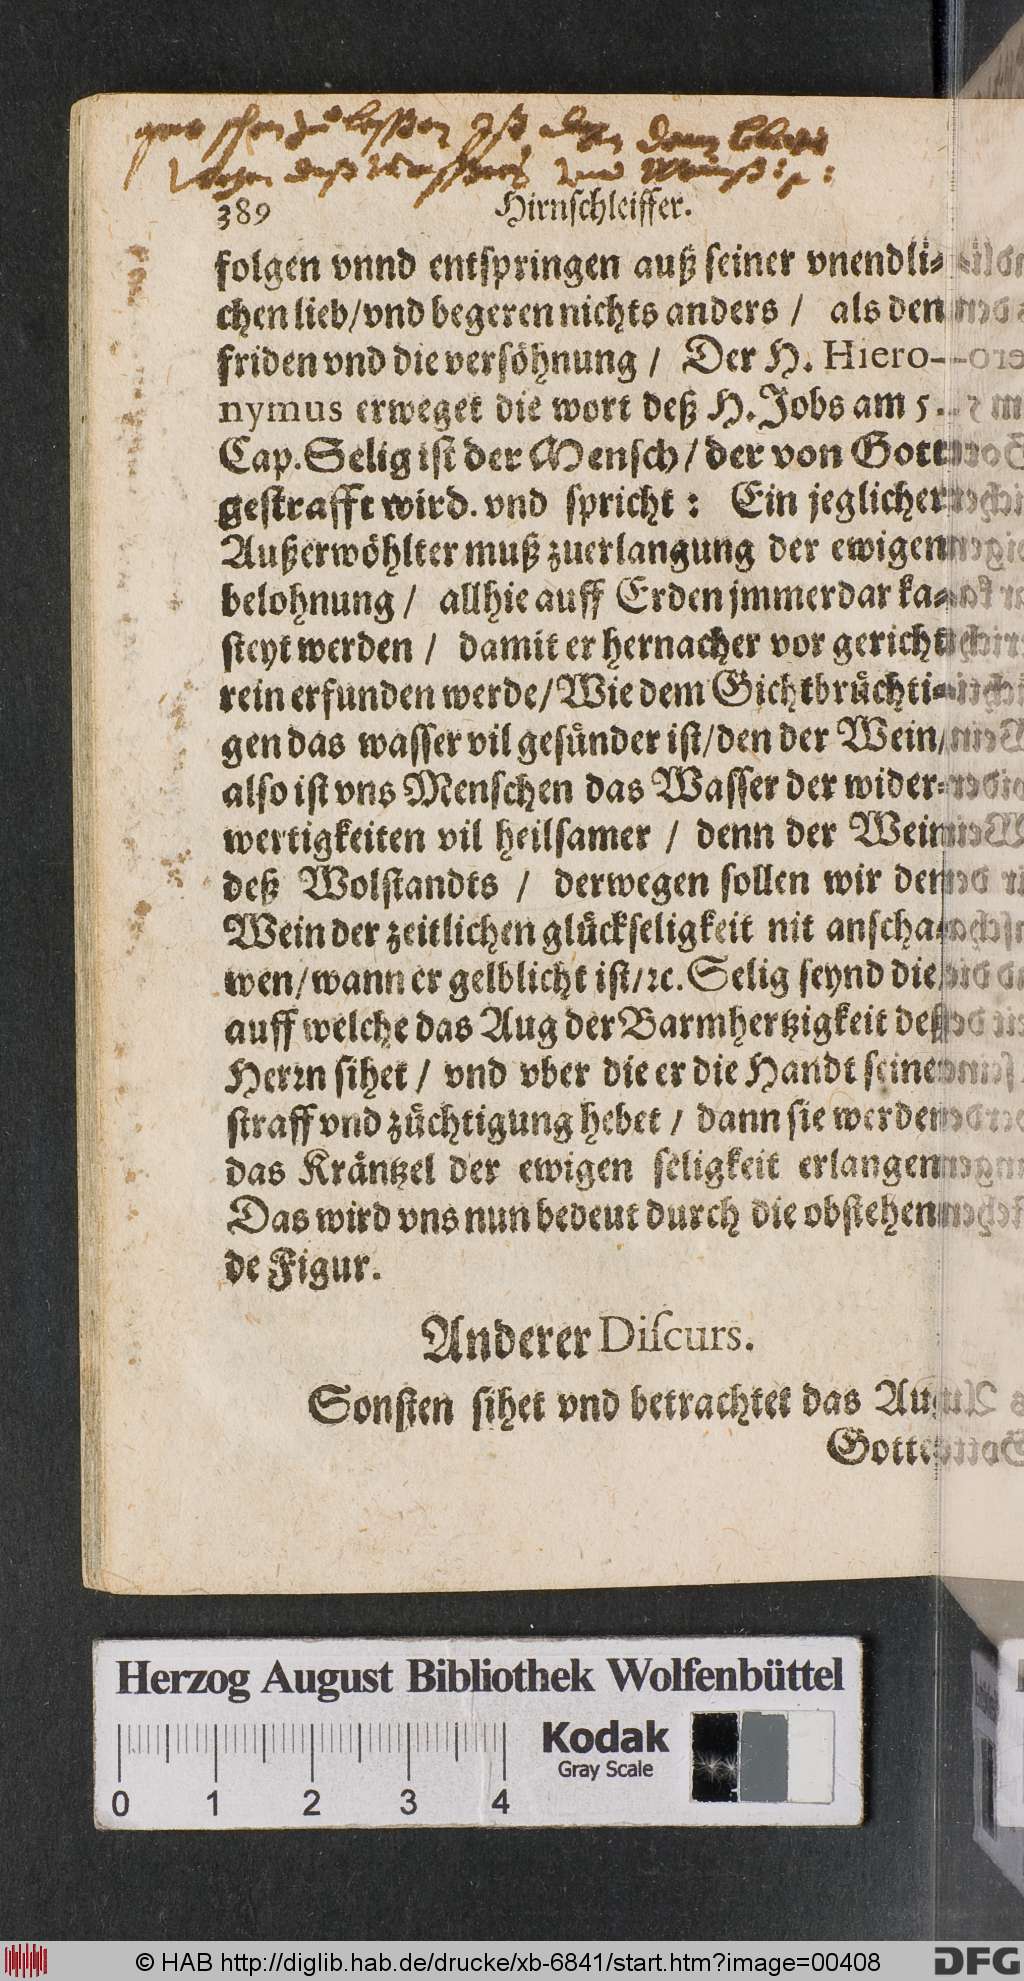 389 Hirnschleiffer.
folgen vnnd entspringen auß seiner vnendli⸗
chen lieb/vnd begeren nichts anders / als den
friden vnd die versöhnung / Der H. Hiero-
nymus erweget die wort deß H. Jobs am 5.
Cap. Selig ist der Mensch / der von Gott
gestrafft wird. vnd spricht : Ein jeglicher
Außerwöhlter muß zuerlangung der ewigen
belohnung / allhie auff Erden jmmerdar ka⸗
steyt werden / damit er hernacher vor gericht
rein erfunden werde/ Wie dem Gichtbrüchti⸗
gen das wasser vil gesünder ist/den der Wein/
also ist vns Menschen das Wasser der wider⸗
wertigkeiten vil heilsamer / denn der Wein
deß Wolstandts / derwegen sollen wir den
Wein der zeitlichen glückseligkeit nit anscha⸗
wen/wann er gelblicht ist/ꝛc. Selig seynd die/
auff welche das Aug der Barmhertzigkeit deß
Herrn sihet / vnd vber die er die Handt seiner
straff vnd züchtigung hebet / dann sie werden
das Kräntzel der ewigen seligkeit erlangen
Das wird vns nun bedeut durch die obstehen⸗
de Figur.
Anderer Diſcurs.
Sonsten sihet vnd betrachtet das Aug
Gottes
Herzog August Bibliothek Wolfenbüttel
Kodak
Gray Scale
0 1 2 3 4
© HAB http://diglib.hab.de/drucke/xb-6841/start.htm?image=00408
DFG